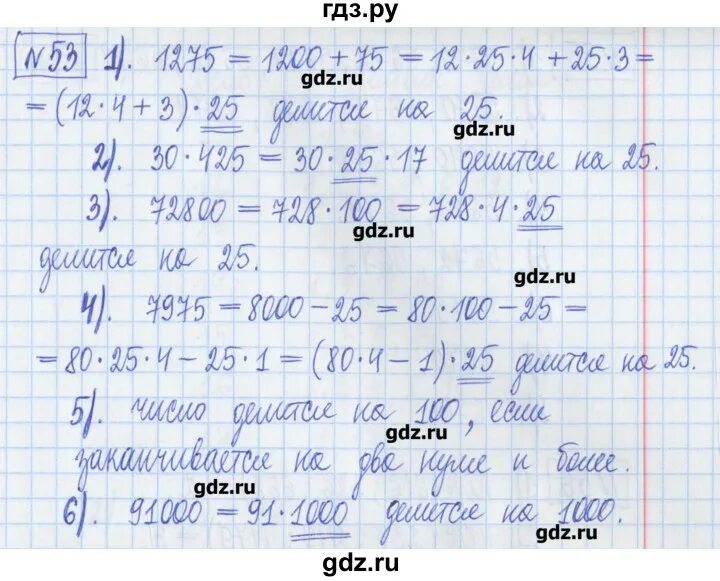 гдз.ру
№53 1). 1275 = 1200 + 75 = 12·25·4 + 25·3 =
gdz.ru
= (12·4 + 3)·25 делится на 25.
gdz.ru
2). 30·425 = 30·25·17 делится на 25.
3). 72800 = 728·100 = 728·4·25
gdz.ru
делится на 25.
gdz.ru
4). 7975 = 8000 – 25 = 80·100 – 25 =
= 80·25·4 – 25·1 = (80·4 – 1)·25 делится на 25.
5). число делится на 100, если
gdz.ru
заканчивается на два нуля и более.
gdz.ru
6). 91000 = 91·1000 делится на 1000.
gdz.ru
gdz.ru